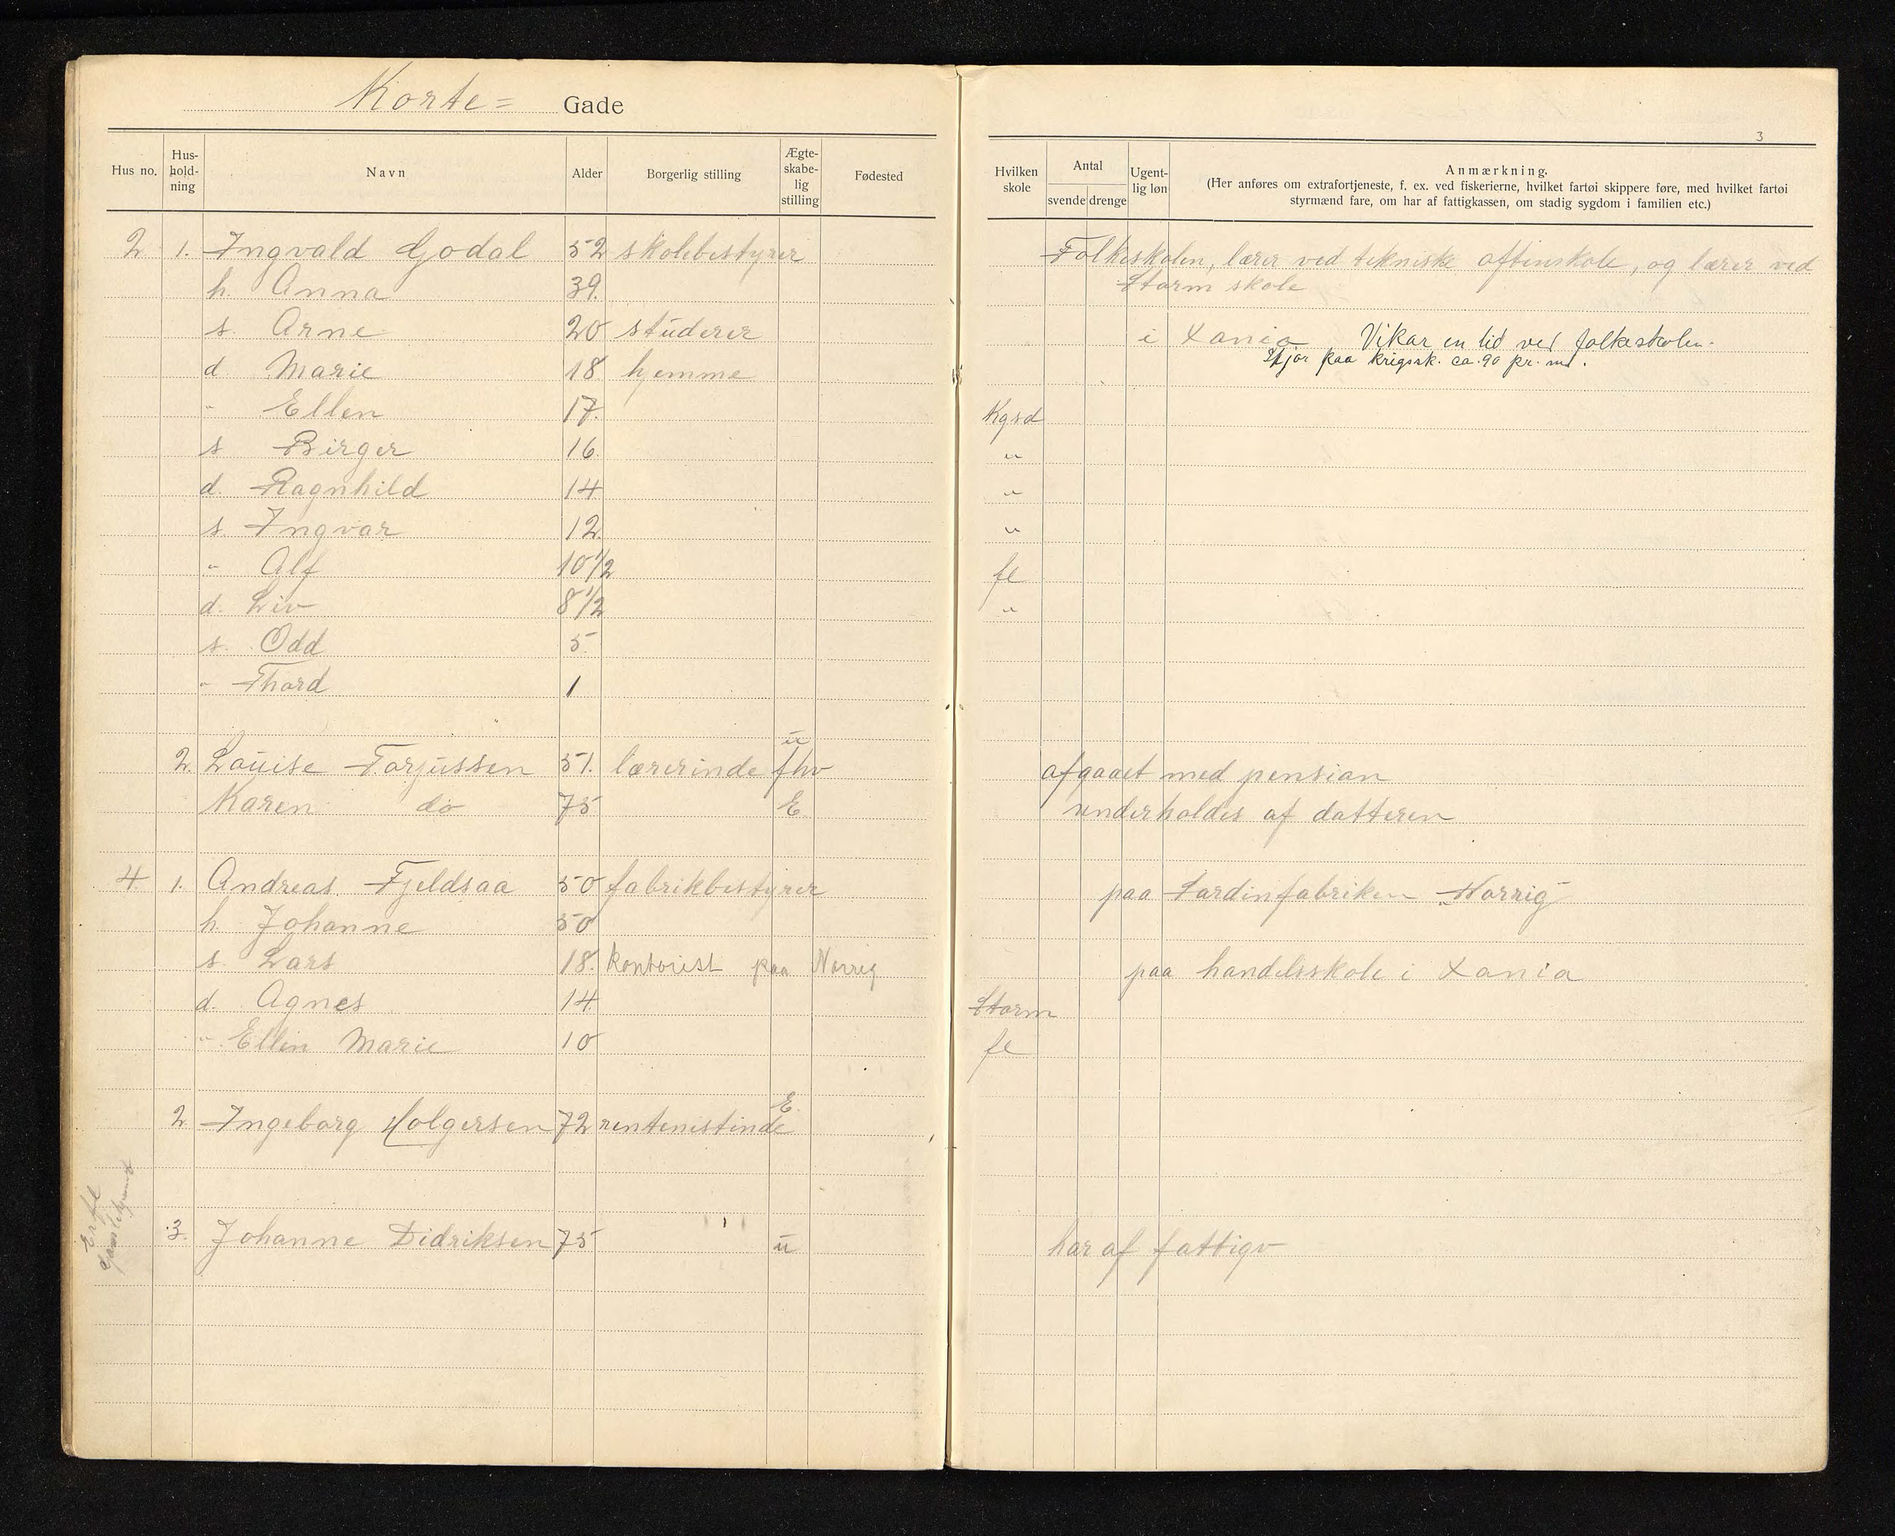 Korte= Gade
3
Hus no. Hus-hold-ning Navn Alder Borgerlig stilling Ægte-skabe-lig stilling Fødested Hvilken skole Antal svende drenge Ugent-lig løn Anmærkning.
(Her anføres om extrafortjeneste, f. ex. ved fiskerierne, hvilket fartøi skippere føre, med hvilket fartøi
styrmænd fare, om har af fattigkassen, om stadig sygdom i familien etc.)
2 1. Ingvald Godal 52 skolebestyrer Folkeskolen, lærer ved tekniske aftenskole, og lærer ved
h. Anna 39. Storm skole
s. Arne 20 studerer i Xania Vikar en tid ved folkeskolen.
d. Marie 18 hjemme Ifjor paa krigssk. ca. 90 pr. md.
" Ellen 17. Kgsd
s Birger 16 "
d. Ragnhild 14 "
s. Ingvar 12 "
" Alf 10 1/2 fl
d. Liv 8 1/2 "
s. Odd 5
" Thord 1
u
2. Louise Torjussen 51. lærerinde fhv afgaaet med pension
Karen do 75 E underholdes af datteren
4 1. Andreas Fjeldsaa 50 fabrikbestyrer paa Sardinfabriken "Norrig"
h. Johanne 50
s. Lars 18. kontorist paa Norrig paa handelsskole i Xania
d. Agnes 14 Storm
" Ellen Marie 10 fl
E.
2 Ingeborg Holgersen 72 rentenistinde
3. Johanne Didriksen 75 u har af fattigv